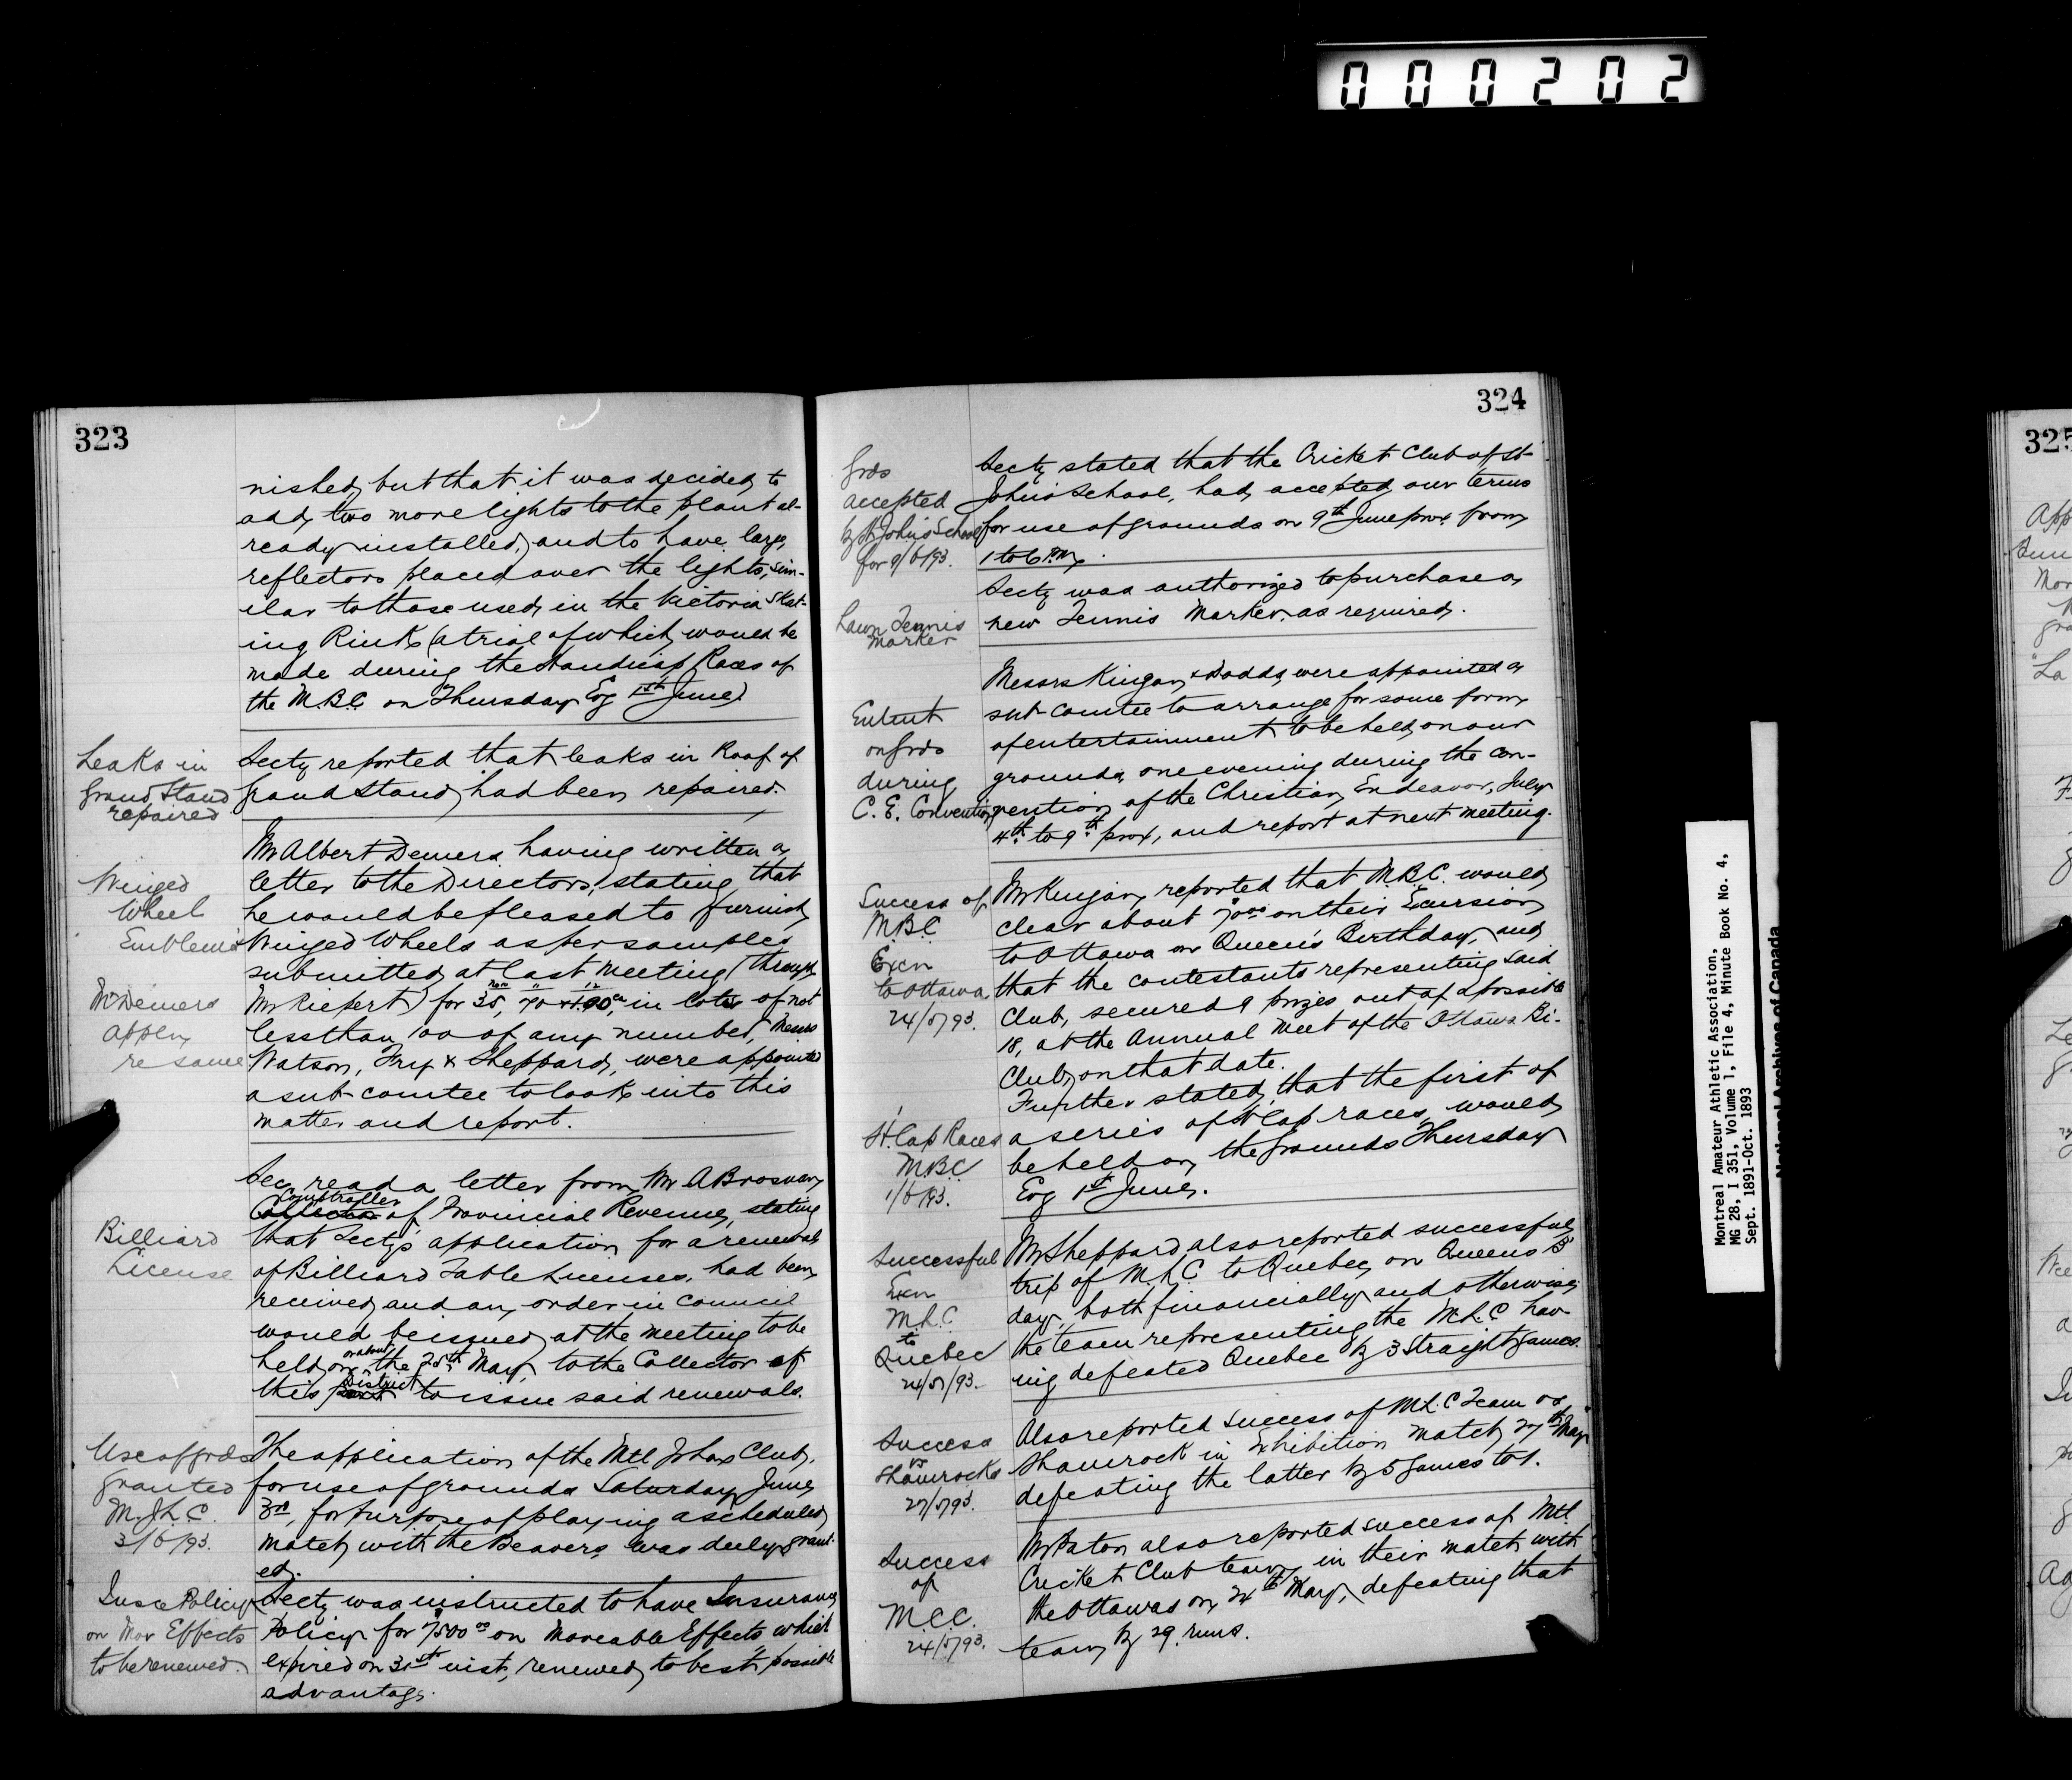 000202
323
nished, but that it was decided to
add two more lights to the plant al-
ready installed, and to have large
reflectors placed over the lights, sim-
ilar to those used in the Victoria Skat-
ing Rink (a trial of which would be
made during the Handicap Races of
the M.B.C. on Thursday Evg 1st June)
Leaks in
Grand Stand
repaired
Secty reported that leaks in Roof of
Grand Stand had been repaired.
Winged
Wheel
Emblems
Mr Demers
Appln
re same
Mr Albert Demers having written a
letter to the Directors, stating that
he would be pleased to furnish
Winged Wheels as per samples
submitted at last meeting (through
Mr Riepert) for 35, 70 & 1.00, in lots of not
less than 100 of any number, Messrs
Watson, Fry & Sheppard, were appointed
a sub-comtee to look into this
matter and report.
Billiard
License
Secy read a letter from Mr A Brosnan
Comptroller
Collector of Provincial Revenue, stating
that Secty's application for a renewal
of Billiard Table Licenses, had been
received and an order in Council
would be issued at the meeting to be
held on or about the 25th May, to the Collector of
this port District to issue said renewals.
Use of grds
granted
M.J.L.C.
3/6/93.
The application of the Mtl Jr Lax Club,
for use of grounds Saturday June
3rd, for purpose of playing a scheduled
match with the Beavers was duly grant-
ed.
Insce Policy
on Mov Effects
to be renewed.
Secty was instructed to have Insurance
Policy for $7500 00 on Moveable Effects which
expired on 31st inst, renewed to best possible
advantage.
324
Grds
accepted
by St Johns School
for 9/6/93.
Secty stated that the Cricket Club of St
John's School, had accepted our terms
for use of grounds on 9th June prox from
1 to 6 P.M.
Lawn Tennis
Marker
Secty was authorized to purchase a
new Tennis Marker as required.
Entmt
on grds
during
C. E. Convention
Messrs Kingan & Dodds were appointed a
sub-comtee to arrange for some form
of entertainment to be held on our
grounds one evening during the Con-
vention of the Christian Endeavor, July
4th to 9th prox, and report at next meeting.
Success of
M.B.C
Excn
to Ottawa
24/5/93.
Mr Kingan reported that M.B.C. would
clear about $70 00 on their Excursion
to Ottawa on Queen's Birthday, and
that the contestants representing said
Club, secured 9 prizes out of a possible
18, at the Annual Meet of the Ottawa Bi.
Club, on that date.
H'Cap Races
M.B.C
1/6/93.
Further stated, that the first of
a series of H'Cap races, would
be held on the grounds Thursday
Evg 1st June.
Successful
Excn
M.L.C
to
Quebec
24/5/93.
Mr Sheppard also reported successful
trip of M.L.C. to Quebec, on Queens B'
day, both financially and otherwise,
the team representing the M.L.C hav-
ing defeated Quebec by 3 Straight games.
Success
vs
Shamrocks
27/5/93.
Also reported success of M.L.C Team vs
Shamrock in Exhibition match 27th May
defeating the latter by 5 games to 1.
Success
of
M.C.C.
24/5/93.
Mr Paton also reported success of Mtl.
Cricket Club team in their match with
the Ottawas on 24th May, defeating that
team by 29 runs.
Montreal Amateur Athletic Association,
MG 28, I 351, Volume 1, File 4, Minute Book No. 4,
Sept. 1891-Oct. 1893
National Archives of Canada
325